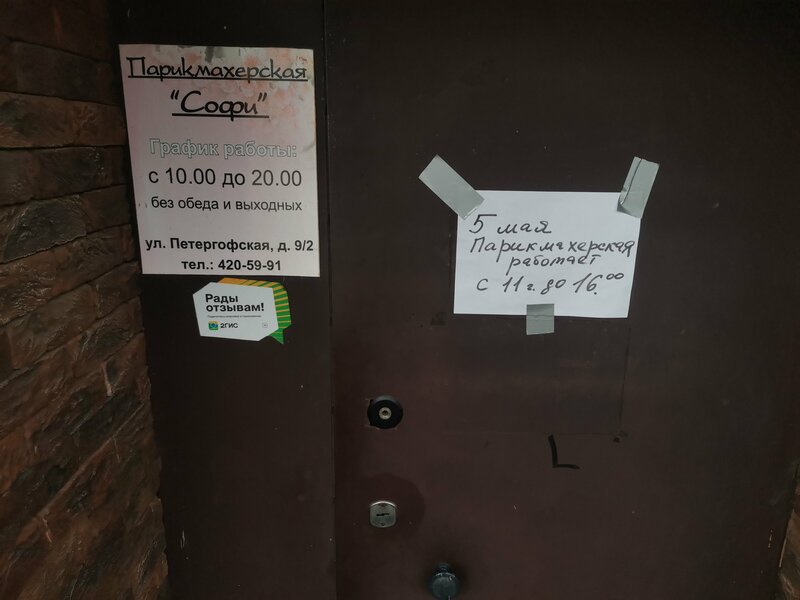 Парикмахерская
"Софи"
График работы:
с 10.00 до 20.00
без обеда и выходных
ул. Петергофская, д. 9/2
тел.: 420-59-91
Рады
отзывам!
2ГИС
5 мая
Парикмахерская
работает
с 11 ч. до 16.00